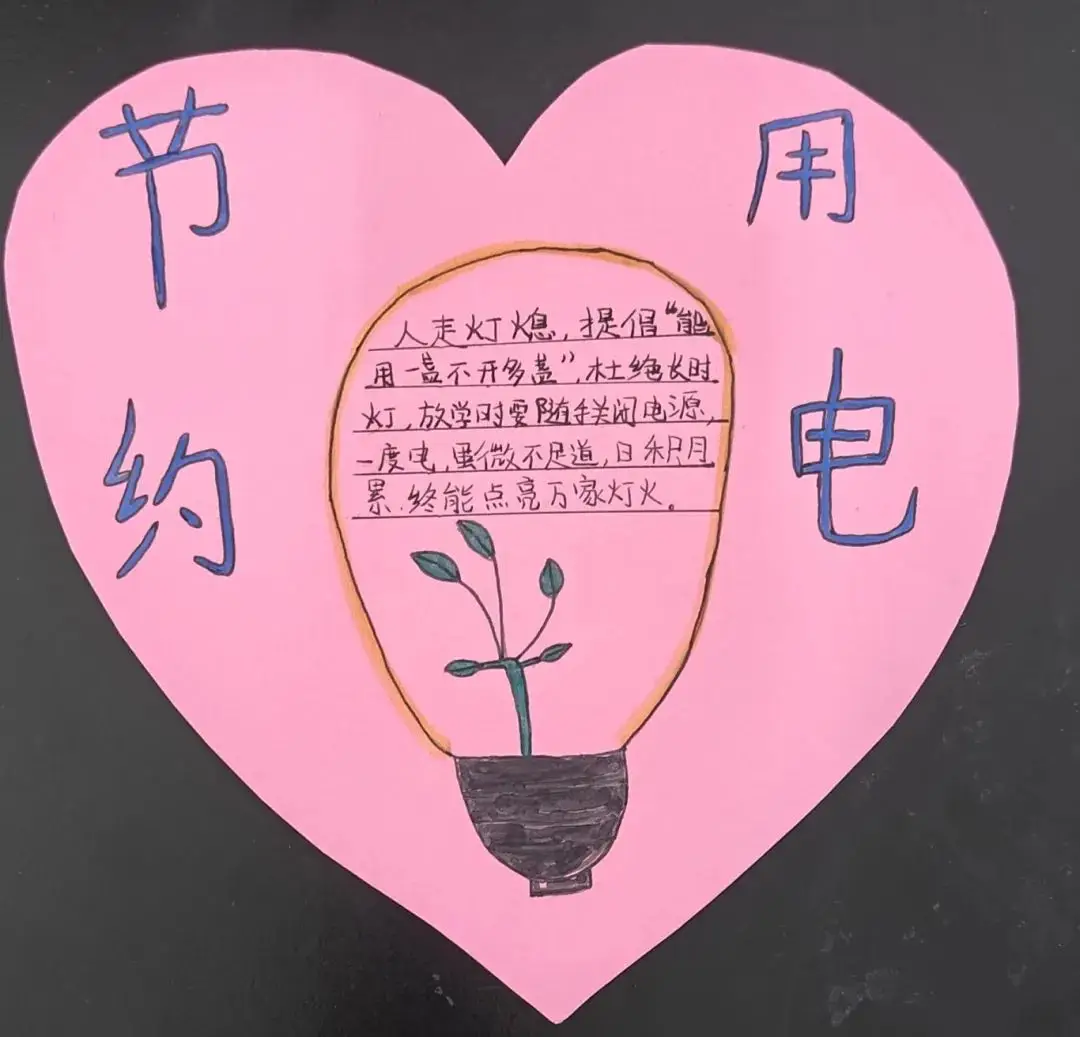 节约
用电
人走灯熄，提倡“能
用一盏不开多盏”，杜绝长时
灯，放学时要随手关闭电源，
一度电，虽微不足道，日积月
累，终能点亮万家灯火。